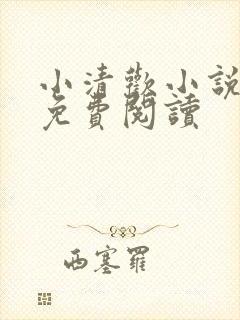 小清歡小說
免費閱讀
西塞羅